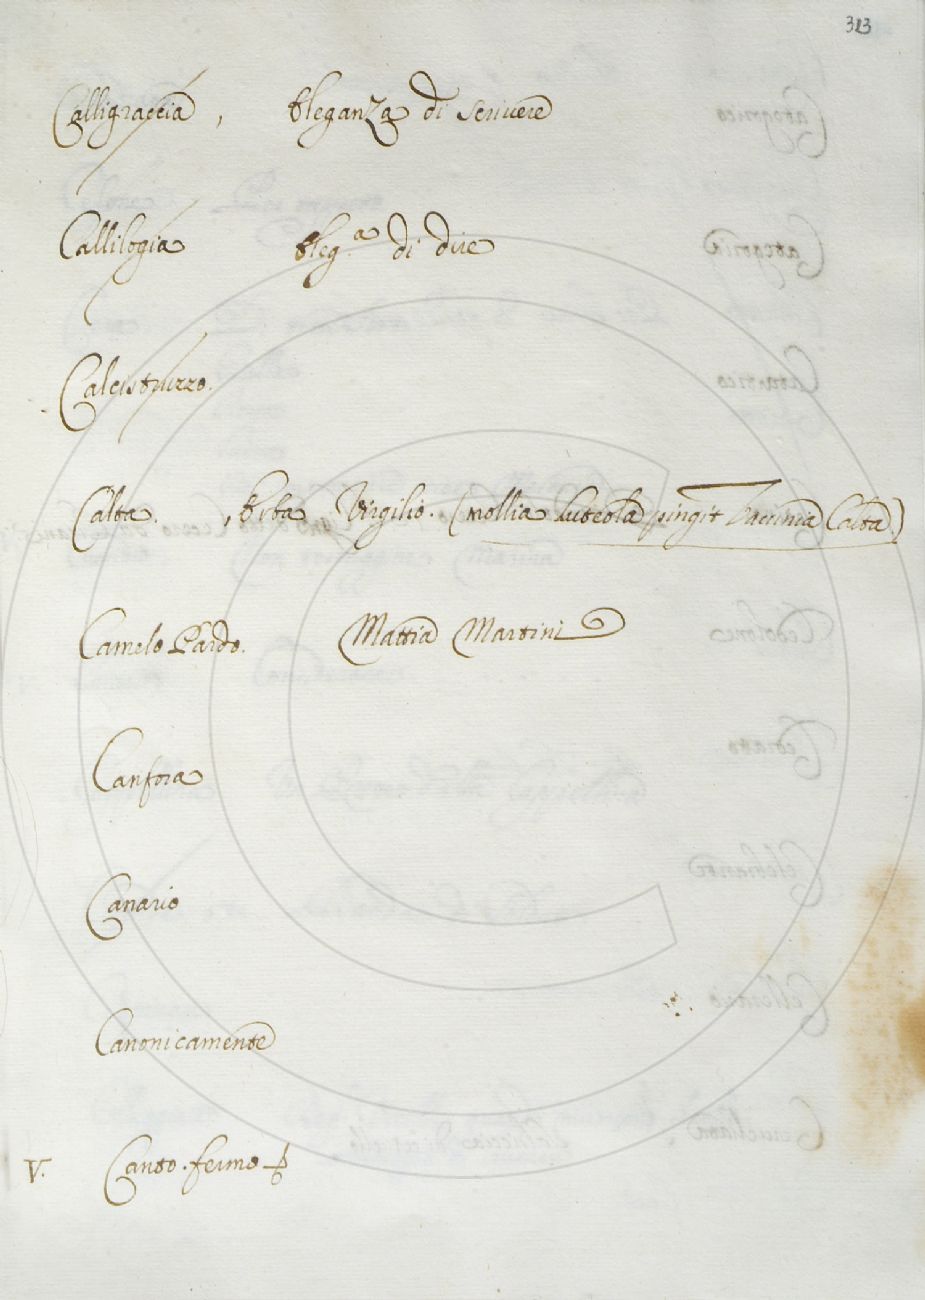 313
Calligraccia, Eleganza di scriuere
Callilogia Eleg.a di dire
Calcistruzzo.
Calta. , Erba Virgilio. (mollia Luteola pingit Vacinia Calta)
Camelo Pardo. Mattia Martini
Canfora
Canario
Canonicamente
V. Canto. fermo